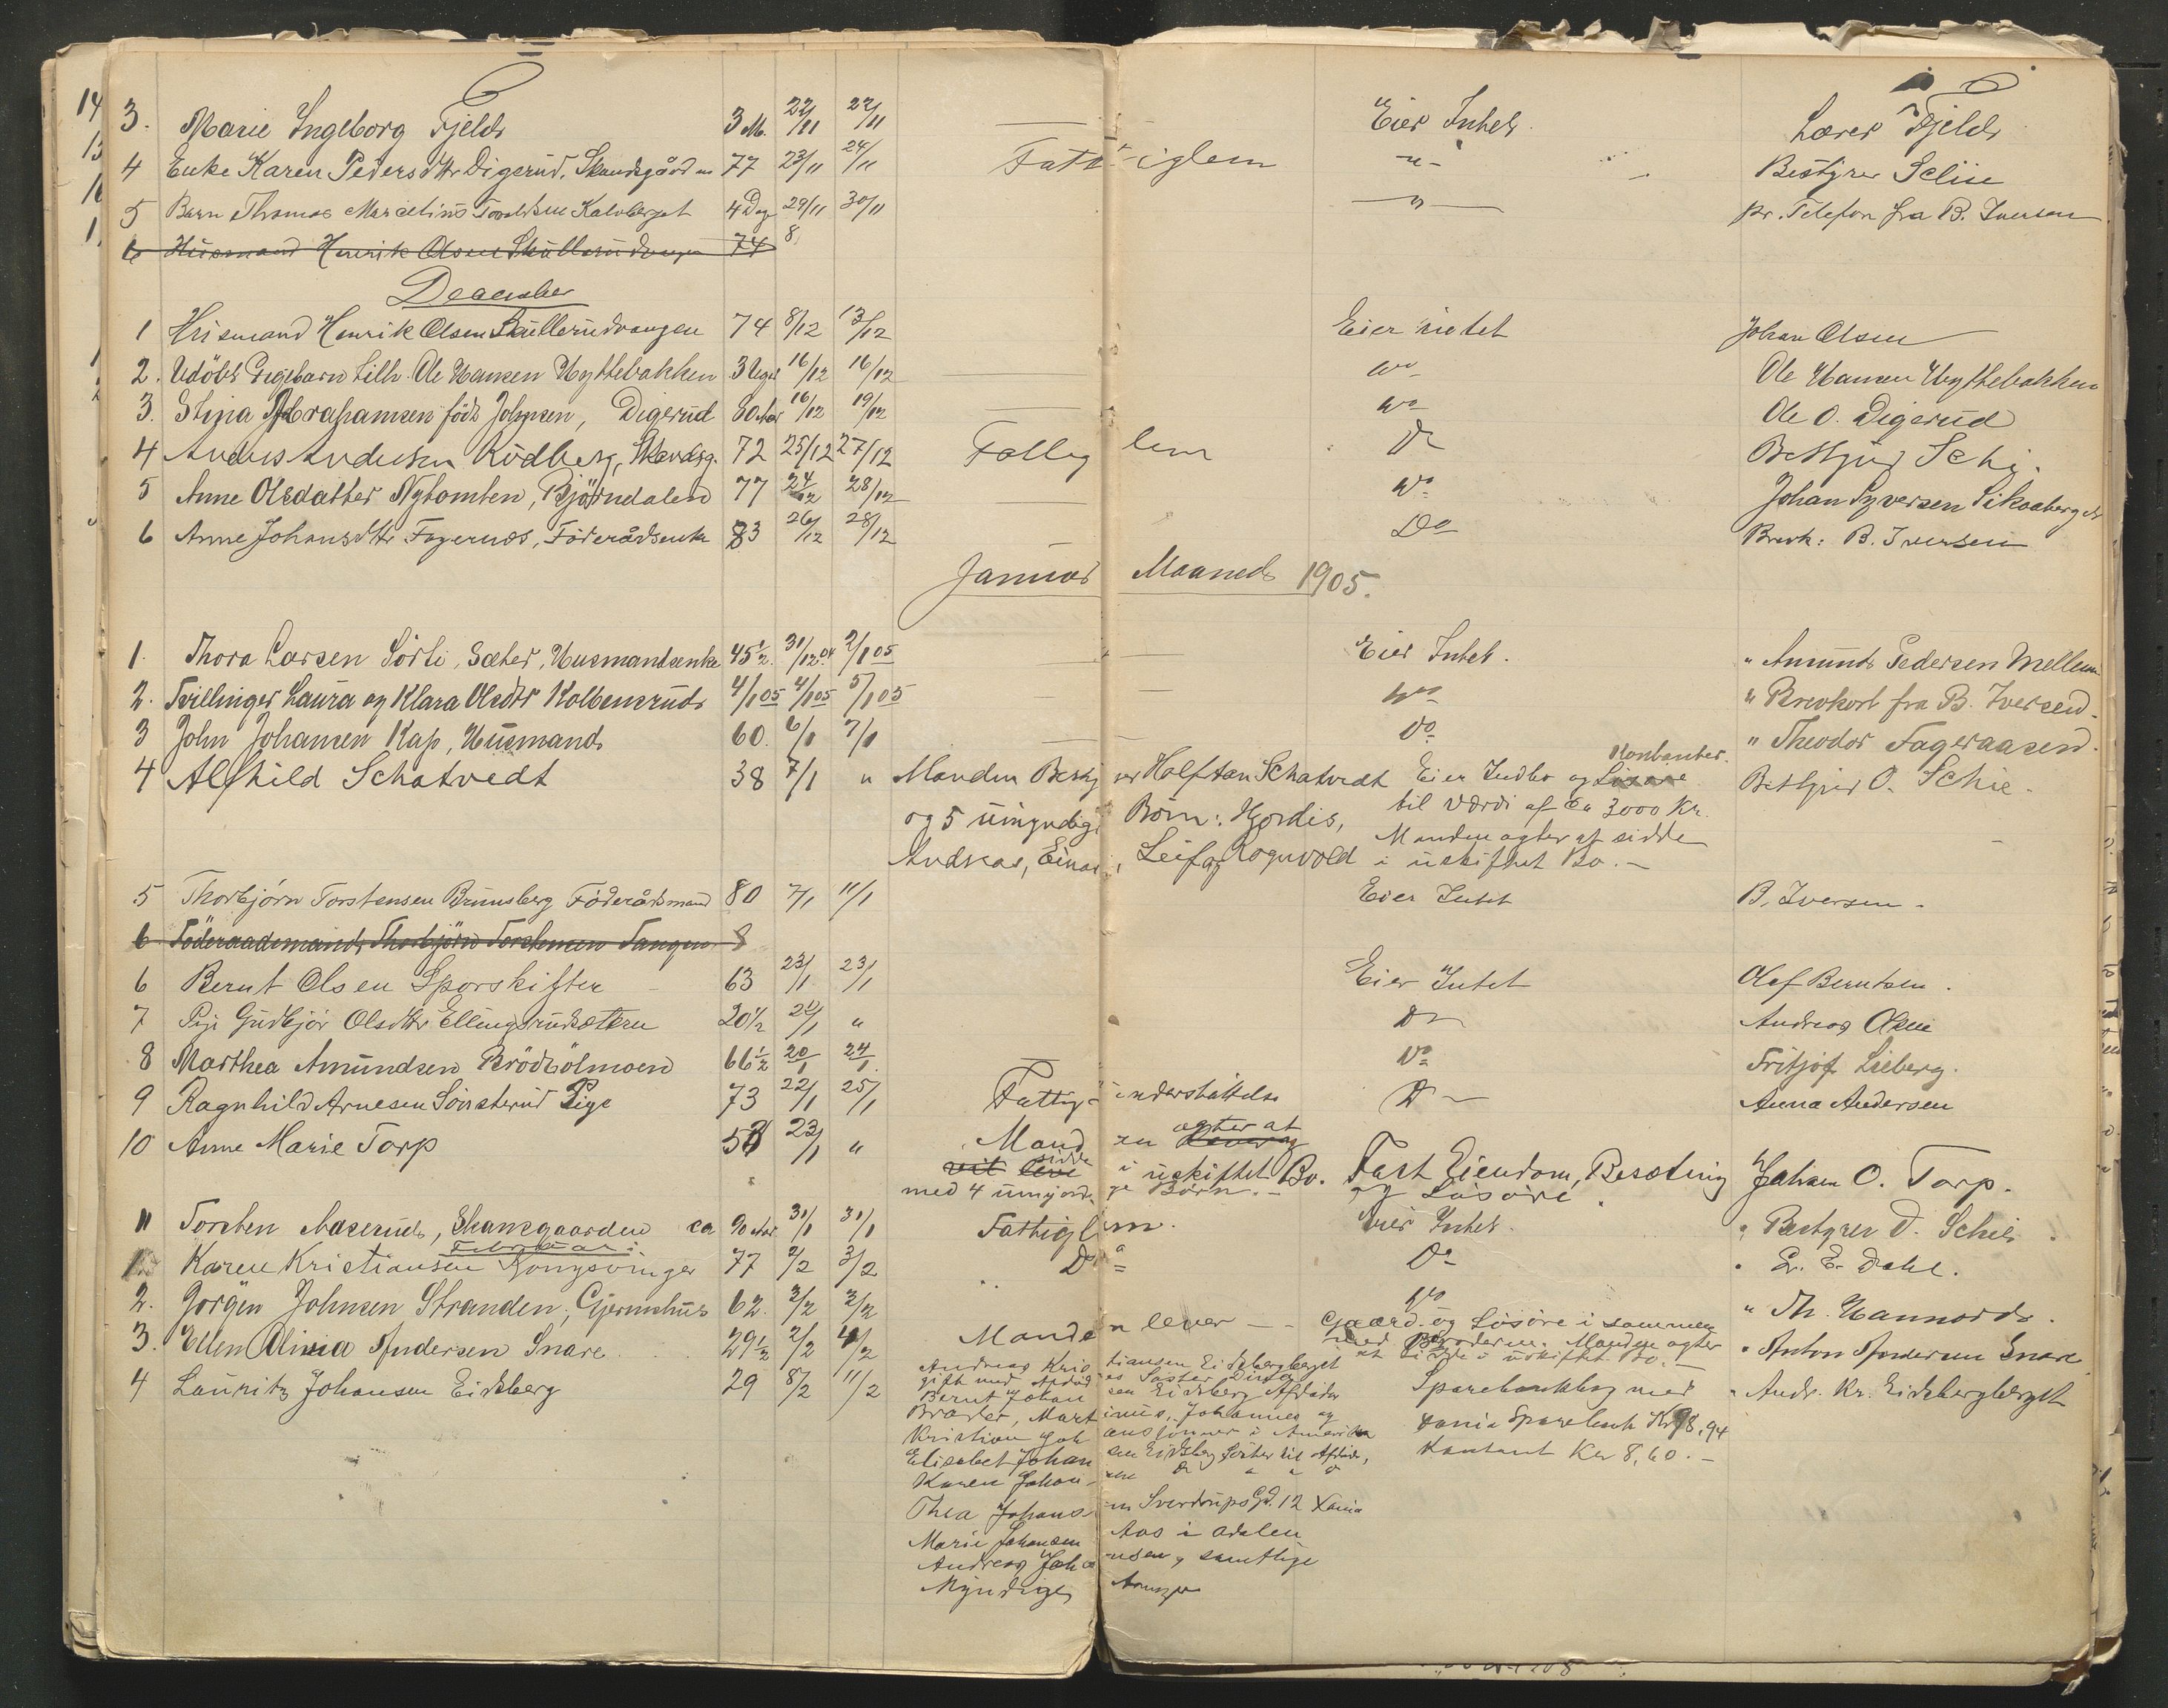 3. Marie Ingeborg Fjeld 3 M. 22/11 27/11 — Eier Intet. Lærer Fjeld
4 Enke Karen Pedersdtr Digerud, Skandsgården 77 23/11 24/11 Fattiglem -"- Bestyrer Schie
5 Barn Thomas Marcelius Kalvberget 4 Dage 29/11 30/11 —"— pr. Telefon fra B. Iversen
6 Husmand Henrik Olsen Skullerudvangen 74 8
December
1 Husmand Henrik Olsen Skullerudvangen 74 8/12 13/12 Eier intet Johan Olsen
2. Udöbt Pigebarn tilh. Ole Hansen Hyttebakken 3 Uger 16/12 16/12 Do Ole Hansen Hyttebakken
3. Stina Abrahamsen födt Johnsen, Digerud 80 Aar 16/12 19/12 — Do Ole O. Digerud
4 Anders Andersen Rödberg, Skandsg. 72 25/12 27/12 Fattiglem Do Bestyrer Schie.
5 Anne Olsdatter Nytomten, Björndalen 77 24/12 28/12 — Do Johan Syversen
6 Anne Johansdtr Fagernæs, Föderådsenke 83 26/12 28/12 — Do Brevk: B. Iversen
Januar Maaned 1905.
1. Thora Larsen Sörli, Sæter, Husmandsenke 45½ 31/12 04 2/1 05 — Eier Intet. " Amund Pedersen Mellem
2. Tvillinger Laura og Klara Olsdtr Kolbensrud 4/1 05 4/1 05 5/1 05 — Do " Brevkort fra B. Iversen.
3 John Johansen Kap, Husmand 60. 6/1 7/1 — Do " Theodor Fageraasen.
Kontanter.
4 Alfhild Schatvedt 38 7/1 " Manden Bestyrer Halfdan Schatvedt Eier Indbo og Lösøre Bestyrer O. Schie.
og 5 umyndige Børn: Hjordis, til Værdi af Ca 3000 Kr.
Andreas, Einar, Leif og Rognvold Manden agter at sidde
i uskiftet Bo. —
5 Thorbjörn Torstensen Brunsberg Föderådsmand 80 7/1 11/1 Eier Intet B. Iversen.
6 Föderaadsmand Thorbjörn Torstensen Tangen 8
6 Bernt Olsen Sporskifter 63 23/1 23/1 Eier Intet Olaf Berntsen.
7 Pige Gudbjør Olsdtr Ellingsrudsætern 20½ 21/1 " Do Andreas Olsen
8 Marthea Amundsen Brödbölmoen 66½ 20/1 24/1 Do Fritjof Lieberg.
9 Ragnhild Arnesen Sönsterud Pige 73 22/1 25/1 Fattigunderstøttelse Do — Anna Andersen
10 Anne Marie Torp 53 23/1 " Manden agter at
sidde i uskiftet Bo. Fast Eiendom, Besætning Johan O. Torp.
med 4 umyndige Børn. — og Løsøre.
11 Torsten Aaserud, Skansgaarden ca 90 Aar 31/1 31/1 Fattiglem. Eier Intet. " Bestyrer O. Schie.
Februar:
1 Karen Kristiansen Kongsvinger 77 2/2 3/2 Do Do " E. Dahl.
2. Jörgen Johnsen Stranden, Gjermshus 62. 3/2 3/2 Do " Th. Hannord.
3. Ellen Olivia Andersen Snare 29½ 2/2 4/2 Manden lever — Gaard og Løsøre i sammen
med Broderen. Manden agter " Anton Andersen Snare
at sidde i uskiftet Bo. —
4 Lauritz Johansen Eidsberg 29 8/2 11/2 Andreas Kristiansen Eidsbergberget Sparebankbog med " Andr. Kr. Eidsbergberget
gift med Afdødes Søster
Bernt Johansen Eidsberg Afdødes
Broder, Martinius, Johannes og Xania Sparebank Kr 98,94
Kristian Johansønner i Amerika Kontant Kr 8,60. —
Elisabet Johansen Eidsberg Søster til Afdøde,
Karen Johansen Do " " "
Thea Johansen Sverdrups Gd. 12 Xania
Marie Johansen Aas i Adalen
Andreas Johansen, samtlige
Myndige